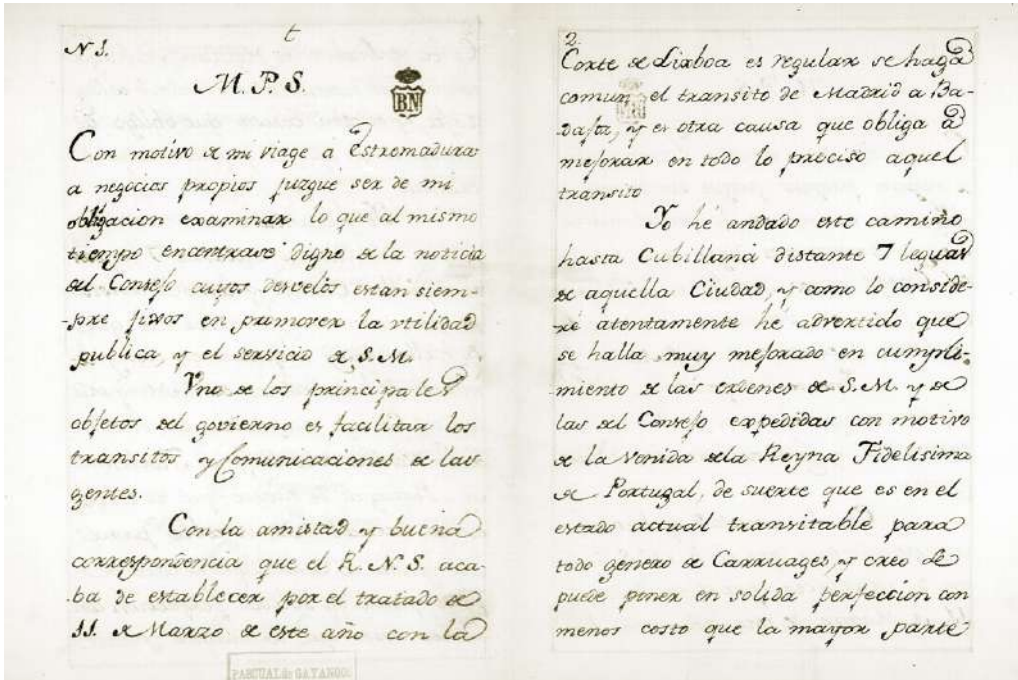 N 1.
t
M. P. S.
BN
Con motivo de mi viage a Estremadura
a negocios propios juzgue ser de mi
obligacion examinar lo que al mismo
tiempo encontrase digno de la noticia
del Consejo cuyos desvelos estan siem-
-pre fixos en promover la vtilidad
publica, y el servicio de S. M.
Vno de los principales
objetos del govierno es facilitar los
transitos y Comunicaciones de las
gentes.
Con la amistad y buena
correspondencia que el R. N. S. aca-
ba de establecer por el tratado de
11 de Marzo de este año con la
PASCUAL de GAYANGOS
2.
Corte de Lisboa es regular se haga
comun el transito de Madrid a Ba-
dajoz, y es otra causa que obliga a
mejorar en todo lo preciso aquel
transito
Yo hé andado este camino
hasta Cubillana distante 7 leguas
de aquella Ciudad, y como lo conside-
ré atentamente hé advertido que
se halla muy mejorado en cumpli-
miento de las ordenes de S. M. y de
las del Consejo expedidas con motivo
de la venida dela Reyna Fidelisima
de Portugal, de suerte que es en el
estado actual transitable para
todo genero de Carruages, y creo se
puede poner en solida perfeccion con
menos costo que la mayor parte